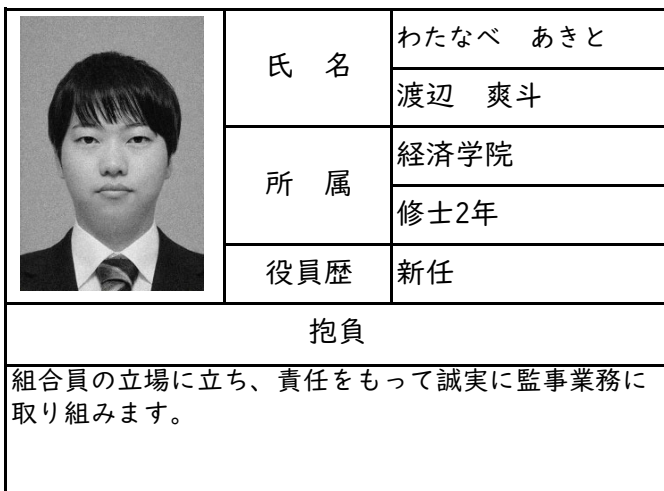 氏　名
わたなべ　あきと
渡辺　爽斗
所　属
経済学院
修士2年
役員歴
新任
抱負
組合員の立場に立ち、責任をもって誠実に監事業務に
取り組みます。